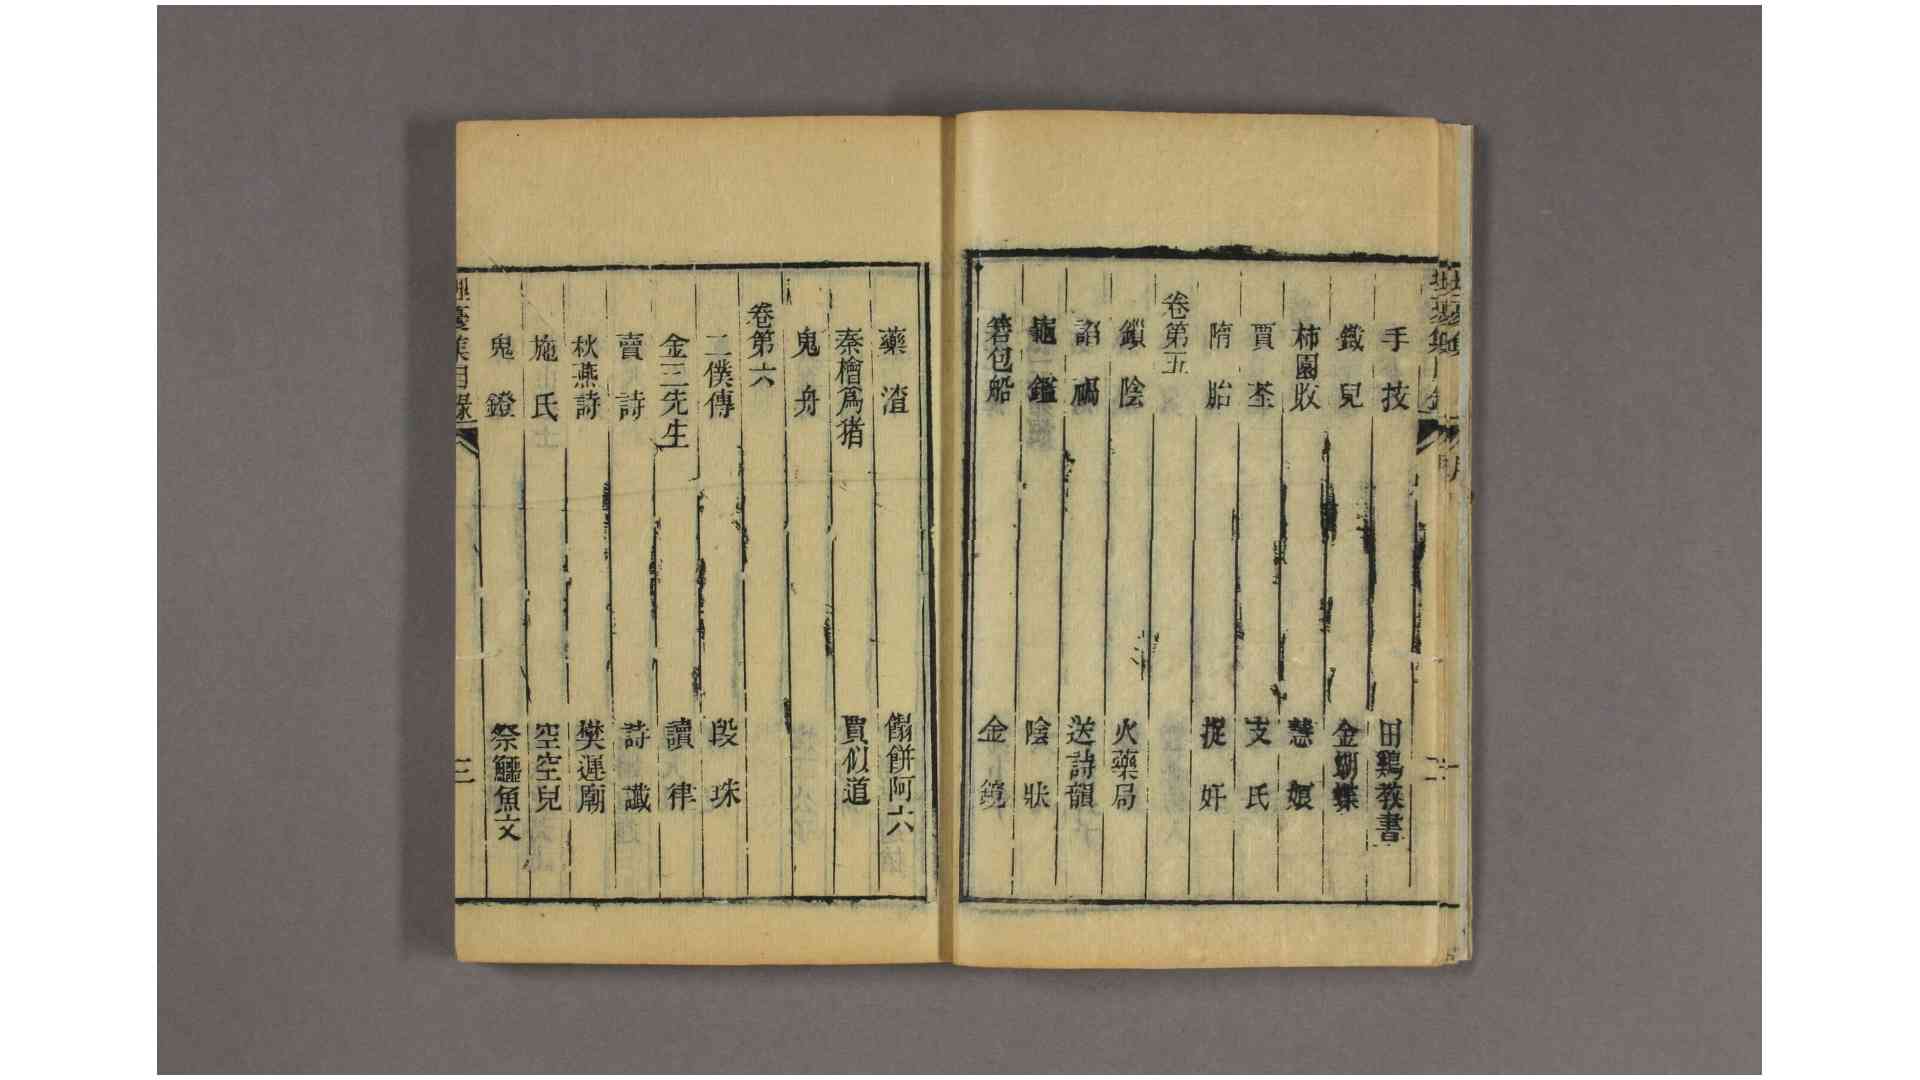 手技 田鷄教書
鐵兒 金蝴蝶
柿園敗 慧娘
賈荃 支氏
隋胎 捉奸
卷第五
鎖陰 火藥局
諂禍 送詩韻
龜鑑 陰狀
箬包船 金鏡
藥渣 餶餅阿六
秦檜爲猪 賈似道
鬼舟
卷第六
二僕傳 段珠
金三先生 讀律
賣詩 詩讖
秋燕詩 樊遲廟
施氏 空空兒
鬼鐙 祭鱷魚文
耳臺集目錄 三